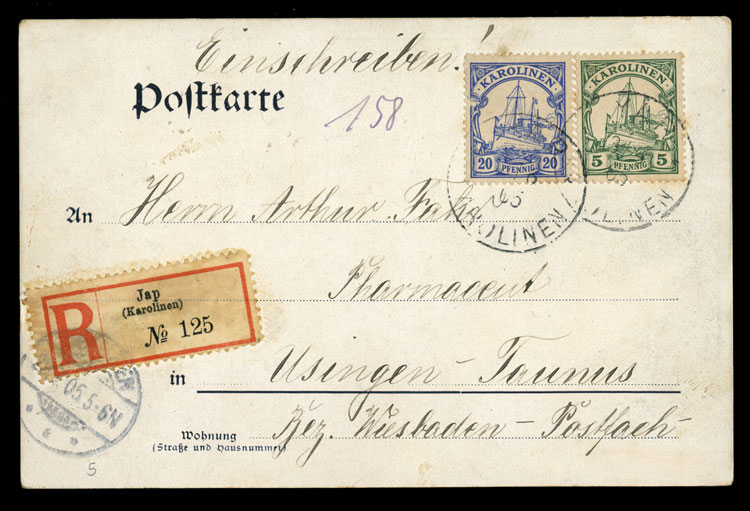 Einschreiben!
Postkarte
158
KAROLINEN
20 PFENNIG 20
KAROLINEN
5 PFENNIG 5
KAROLINEN
An Herrn Arthur
Pharmaceut
Jap
(Karolinen)
R
№ 125
05.5-6N
in Usingen - Taunus
Bez. Wiesbaden - Postfach-
Wohnung
(Straße und Hausnummer)
5